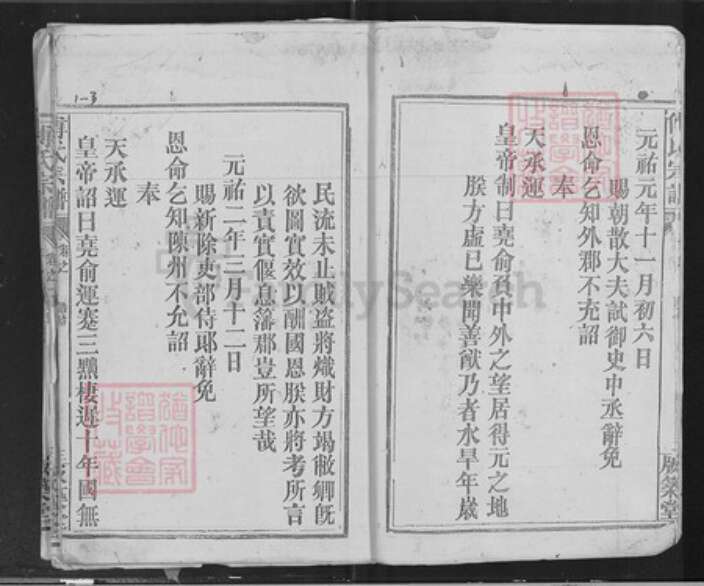 元祐元年十一月初六日
賜朝散大夫試御史中丞辭免
恩命乞知外郡不允詔
奉
天承運
皇帝制曰堯俞負中外之望居得元之地
朕方虛己樂聞善猷乃者水旱年歲
民流未止賊盜將熾財方竭敝卿旣
欲圖實效以酬國恩朕亦將考所言
以責實偃息藩郡豈所望哉
元祐二年三月十二日
賜新除吏部侍郎辭免
恩命乞知陳州不允詔
奉
天承運
皇帝詔曰堯俞運蹇三黜棲遲十年國無
傅氏宗譜
版築堂
1-3
FamilySearch